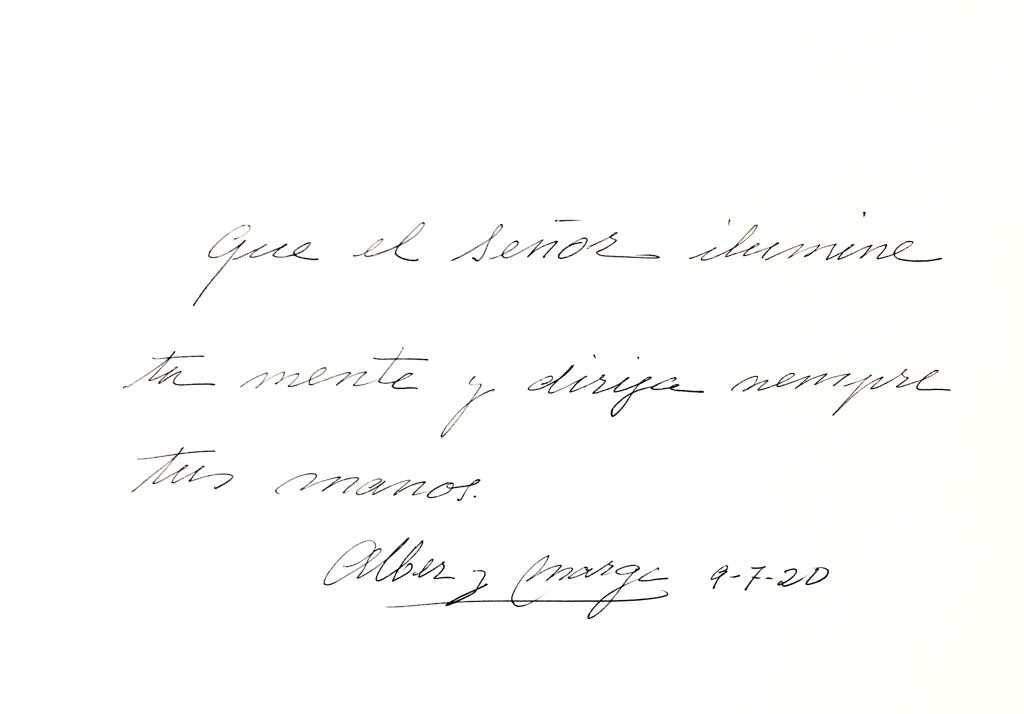 Que el Señor ilumine
tu mente y dirija siempre
tus manos.
Alber y Marge 9-7-20